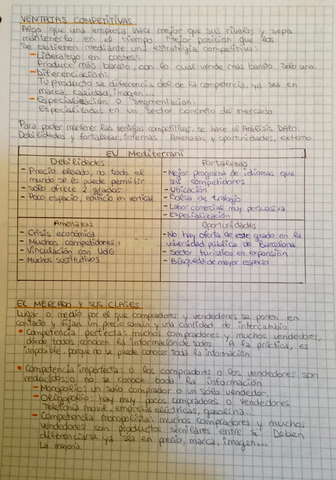 VENTAJAS COMPETITIVAS
Algo que una empresa hace mejor que sus rivales y sepa
mantenerlo en el tiempo. Mejor posición que los
Se obtienen mediante una estrategia competitiva:
- Liderazgo en costes:
Produce más barato, con lo cual vende más barato. Solo una.
- Diferenciación:
Tu producto se diferencia del de la competencia, ya sea en
marca, calidad, imagen...
- Especialización o segmentación:
Especializadas en un sector concreto del mercado
Para poder mantener las ventajas competitivas, se hace el Análisis DAFO.
Debilidades y fortalezas, internas. Amenazas y oportunidades, externo
EU Mediterrani
Debilidades
- Precio elevado, no todo el
mundo se lo puede permitir
- Solo ofrece 2 grados
- Poco espacio, edificio en vertical
Fortalezas
- Mejor programa de idiomas que
sus competidores
- Ubicación
- Bolsa de trabajo
- Labor comercial muy persuasiva
- Especialización
Amenazas
- Crisis económica
- Muchos competidores
- Vinculación con UdG
- Muchos sustitutivos
Oportunidades
- No hay oferta de este grado en la
universidad pública de Barcelona
- Sector turístico en expansión
- Búsqueda de mayor espacio
EL MERCADO Y SUS CLASES
Lugar o medio por el que compradores y vendedores se ponen en
contacto y fijan un precio común y una cantidad de intercambio
• Competencia perfecta: muchos compradores y muchos vendedores,
donde todos conocen la información de todos. A la práctica, es
imposible, porque no se puede conocer toda la información
• Competencia imperfecta: o los compradores o los vendedores son
reducidos, o no se conoce toda la información
- Monopolio: un solo comprador o un solo vendedor
- Oligopolio: hay muy pocos compradores o vendedores
Telefonía móvil, empresas eléctricas, gasolina...
- Competencia monopolista: muchos compradores y muchos
vendedores con productos similares entre sí. Deben
diferenciarse ya sea en precio, marca, imagen...
La mayoría.